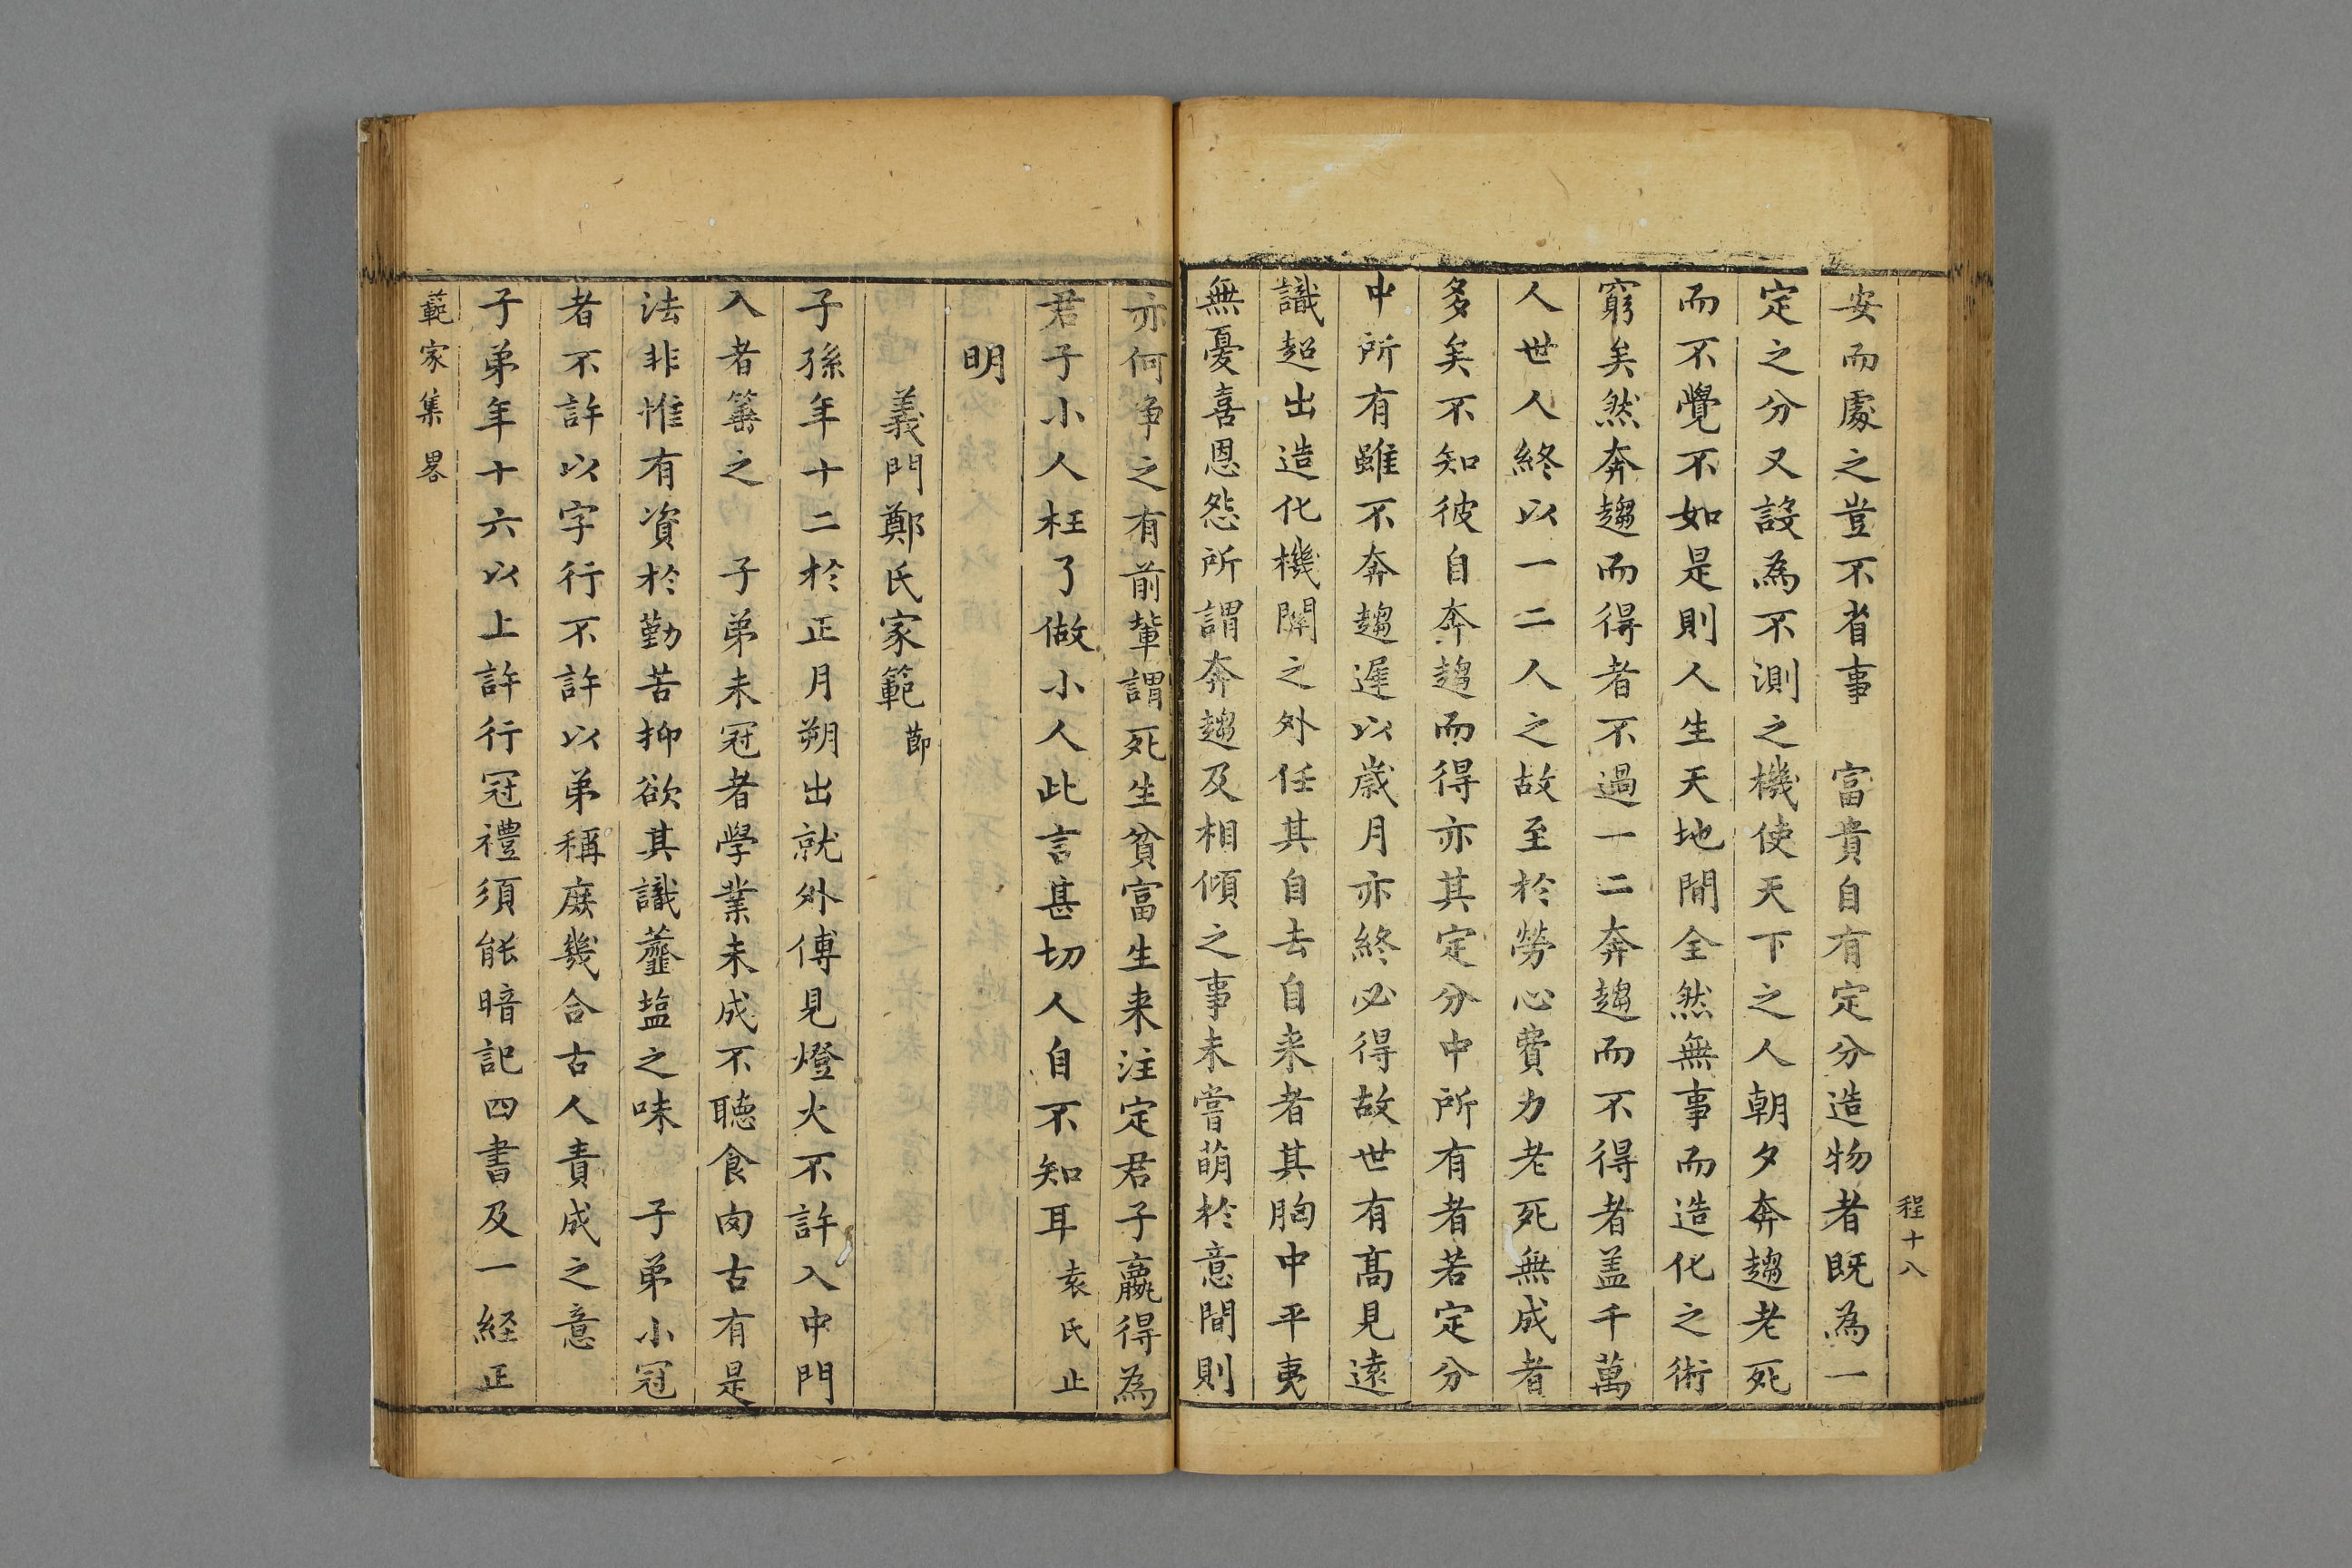 程十八
安而處之豈不省事　富貴自有定分造物者既為一
定之分又設為不測之機使天下之人朝夕奔趨老死
而不覺不如是則人生天地間全然無事而造化之術
窮矣然奔趨而得者不過一二奔趨而不得者盖千萬
人世人終以一二人之故至於勞心費力老死無成者
多矣不知彼自奔趨而得亦其定分中所有者若定分
中所有雖不奔趨遲以歲月亦終必得故世有高見遠
識超出造化機關之外任其自去自来者其胸中平夷
無憂喜恩怨所謂奔趨及相傾之事未嘗萌於意間則
亦何争之有前輩謂死生貧富生来注定君子贏得為
君子小人枉了做小人此言甚切人自不知耳袁氏止
明
義門鄭氏家範節
子孫年十二於正月朔出就外傅見燈火不許入中門
入者箠之　子弟未冠者學業未成不聴食肉古有是
法非惟有資於勤苦抑欲其識虀塩之味　子弟小冠
者不許以字行不許以弟稱庶幾合古人責成之意
子弟年十六以上許行冠禮須能暗記四書及一経正
範家集畧